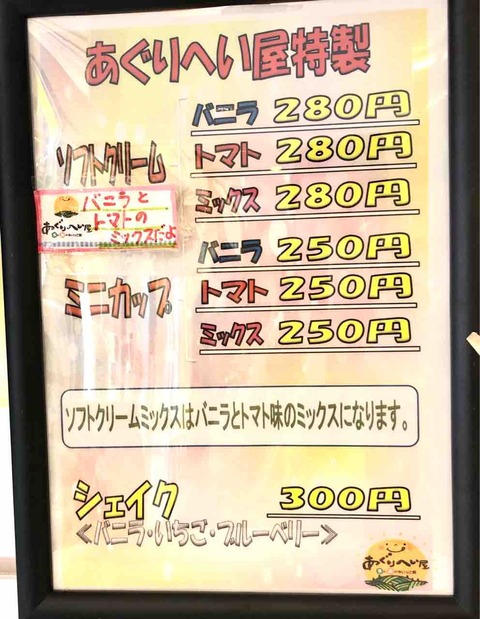 あぐりへい屋特製
ソフトクリーム
バニラ 280円
トマト 280円
ミックス 280円
バニラと
トマトの
ミックスだよ
あぐりへい屋
ミニカップ
バニラ 250円
トマト 250円
ミックス 250円
ソフトクリームミックスはバニラとトマト味のミックスになります。
シェイク 300円
<バニラ・いちご・ブルーベリー>
あぐりへい屋